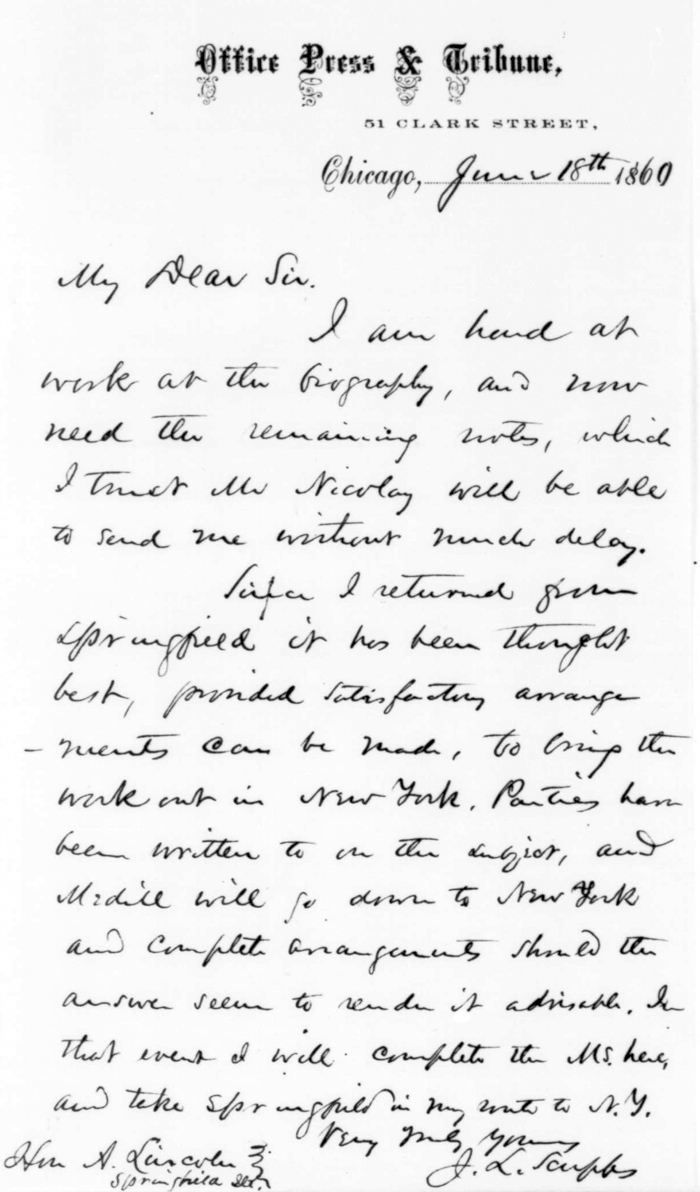 Office Press & Tribune,
51 CLARK STREET,
Chicago, June 18th 1860
My Dear Sir.
I am hard at
work at the biography, and now
need the remaining notes, which
I trust Mr Nicolay will be able
to send me without much delay.
Since I returned from
Springfield it has been thought
best, provided satisfactory arrange
-ments can be made, to bring the
work out in New York. Parties have
been written to on the subject, and
Medill will go down to New York
and complete arrangements should the
answer seem to render it advisable. In
that event I will complete the Ms. here,
and take Springfield in my route to N.Y.
Very truly yours
J. L. Scripps
Hon A. Lincoln
Springfield Ill.